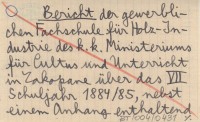 Bericht der gewerbli-
chen Fachschule für Holz-In-
dustrie des k.k. Ministeriums
für Cultus und Unterricht
in Zakopane über das VII
Schuljahr 1884/85, nebst
einem Anhang enthaltend